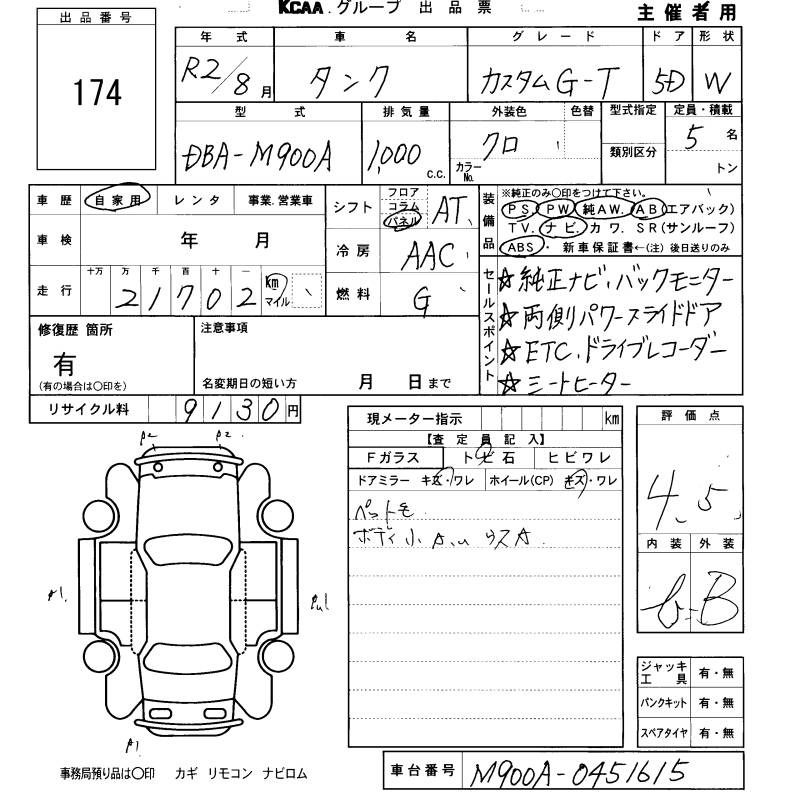 KCAA.グループ 出品票
主催者用
出品番号
174
年式 車名 グレード ドア 形状
R2/8月 タンク カスタムG-T 5D W
型式 排気量 外装色 色替 型式指定 定員・積載
DBA-M900A 1,000 c.c. クロ カラーNo. 類別区分 5名 トン
車歴 自家用 レンタ 事業.営業車
車検 年 月
走行 十万 万 千 百 十 一
21702 km マイル
シフト フロア コラム パネル AT
冷房 AAC
燃料 G
装備品
※純正のみ○印をつけて下さい。
PS. PW. 純AW. AB(エアバック)
TV. ナビ. カワ. SR(サンルーフ)
ABS・ 新車保証書←(注) 後日送りのみ
セールスポイント
☆純正ナビ、バックモニター
☆両側パワースライドドア
☆ETC、ドライブレコーダー
☆シートヒーター
修復歴 箇所
有
(有の場合は○印を)
注意事項
名変期日の短い方 月 日まで
リサイクル料 9130円
現メーター指示 km
【査定員記入】
Fガラス トビ石 ヒビワレ
ドアミラー キズ・ワレ ホイール(CP) キズ・ワレ
ペットモ
ボディ小A、u ウスA
評価点
4、5
内装 外装
b B
A2 A2
A1.
A1
ジャッキ工具 有・無
パンクキット 有・無
スペアタイヤ 有・無
事務局預り品は○印 カギ リモコン ナビロム
車台番号 M900A-0451615